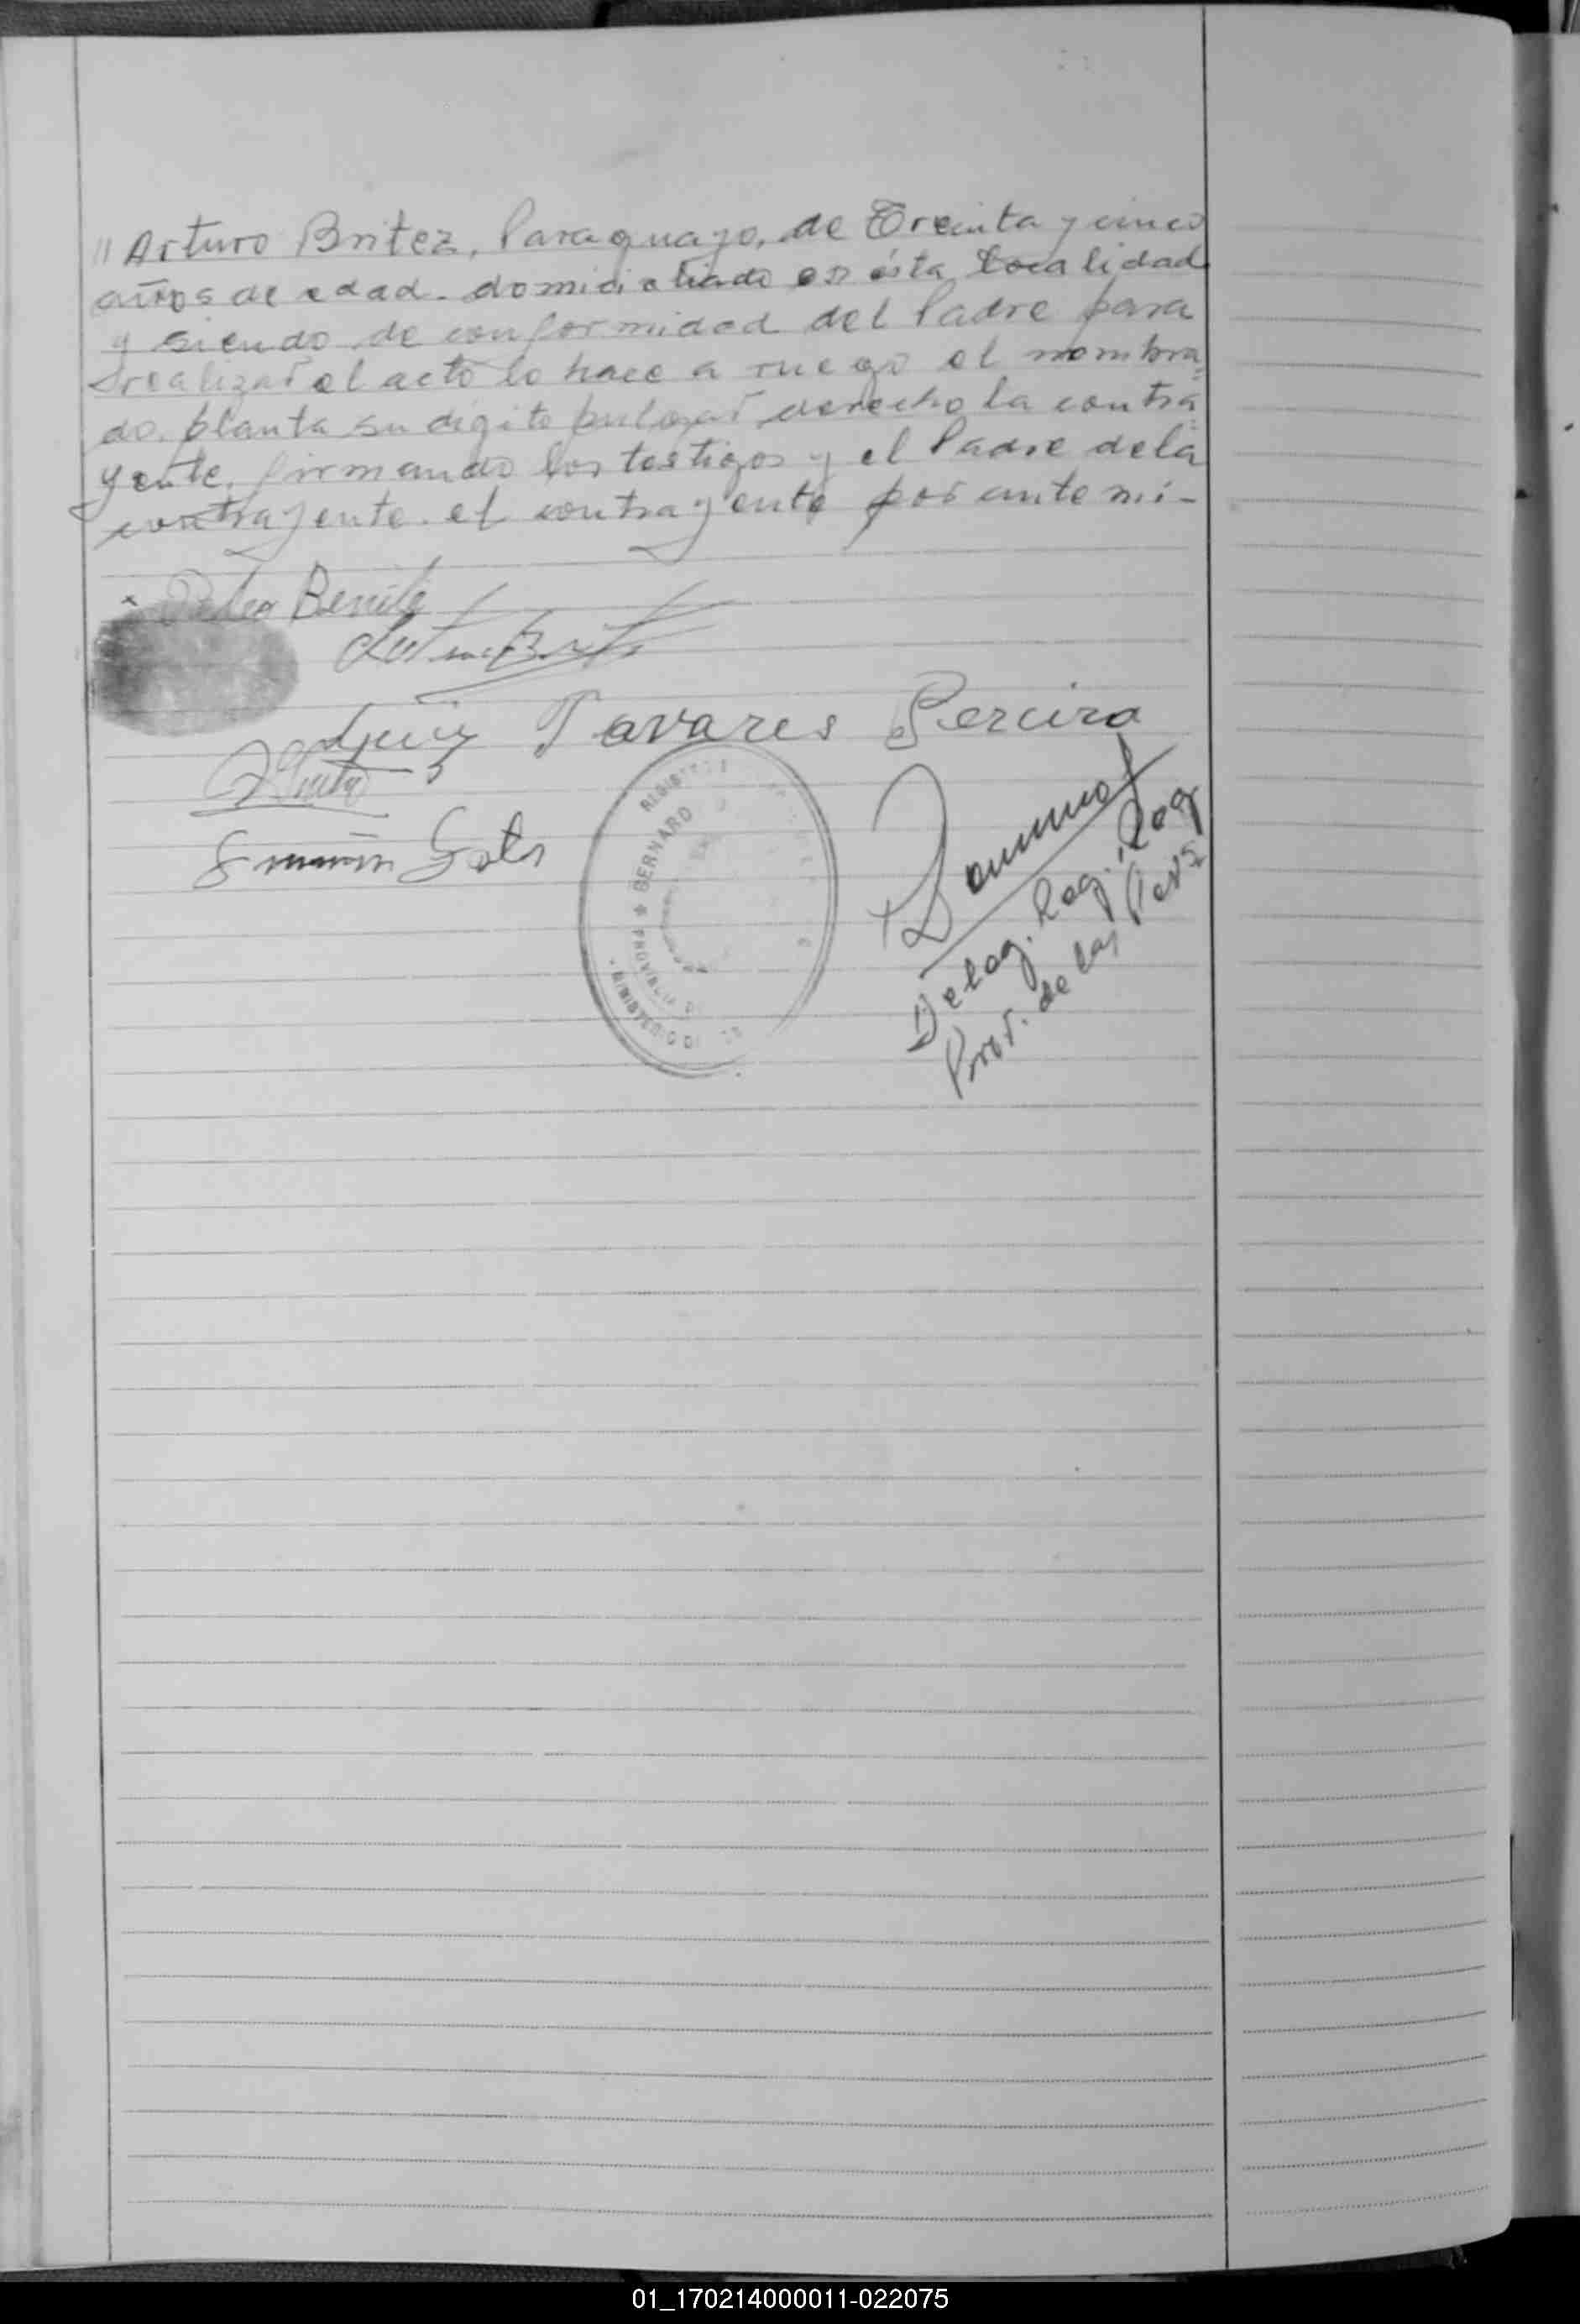 // Arturo Britez, Paraguayo, de Treinta y cinco
años de edad. domiciliado en ésta Localidad
y siendo de conformidad del Padre para
realizar el acto lo hace a ruego el nombra
do. planta su dígito pulgar derecho la contra
yente, firmando los testigos y el Padre de la
contrayente. el contrayente por ante mí-
x Pedro Benite
Tavares Pereira
REGISTR
BERNARD
PROVINCIA
MINISTERIO DE
Deleg. Reg.
Prov. de las Pers
01_170214000011-022075